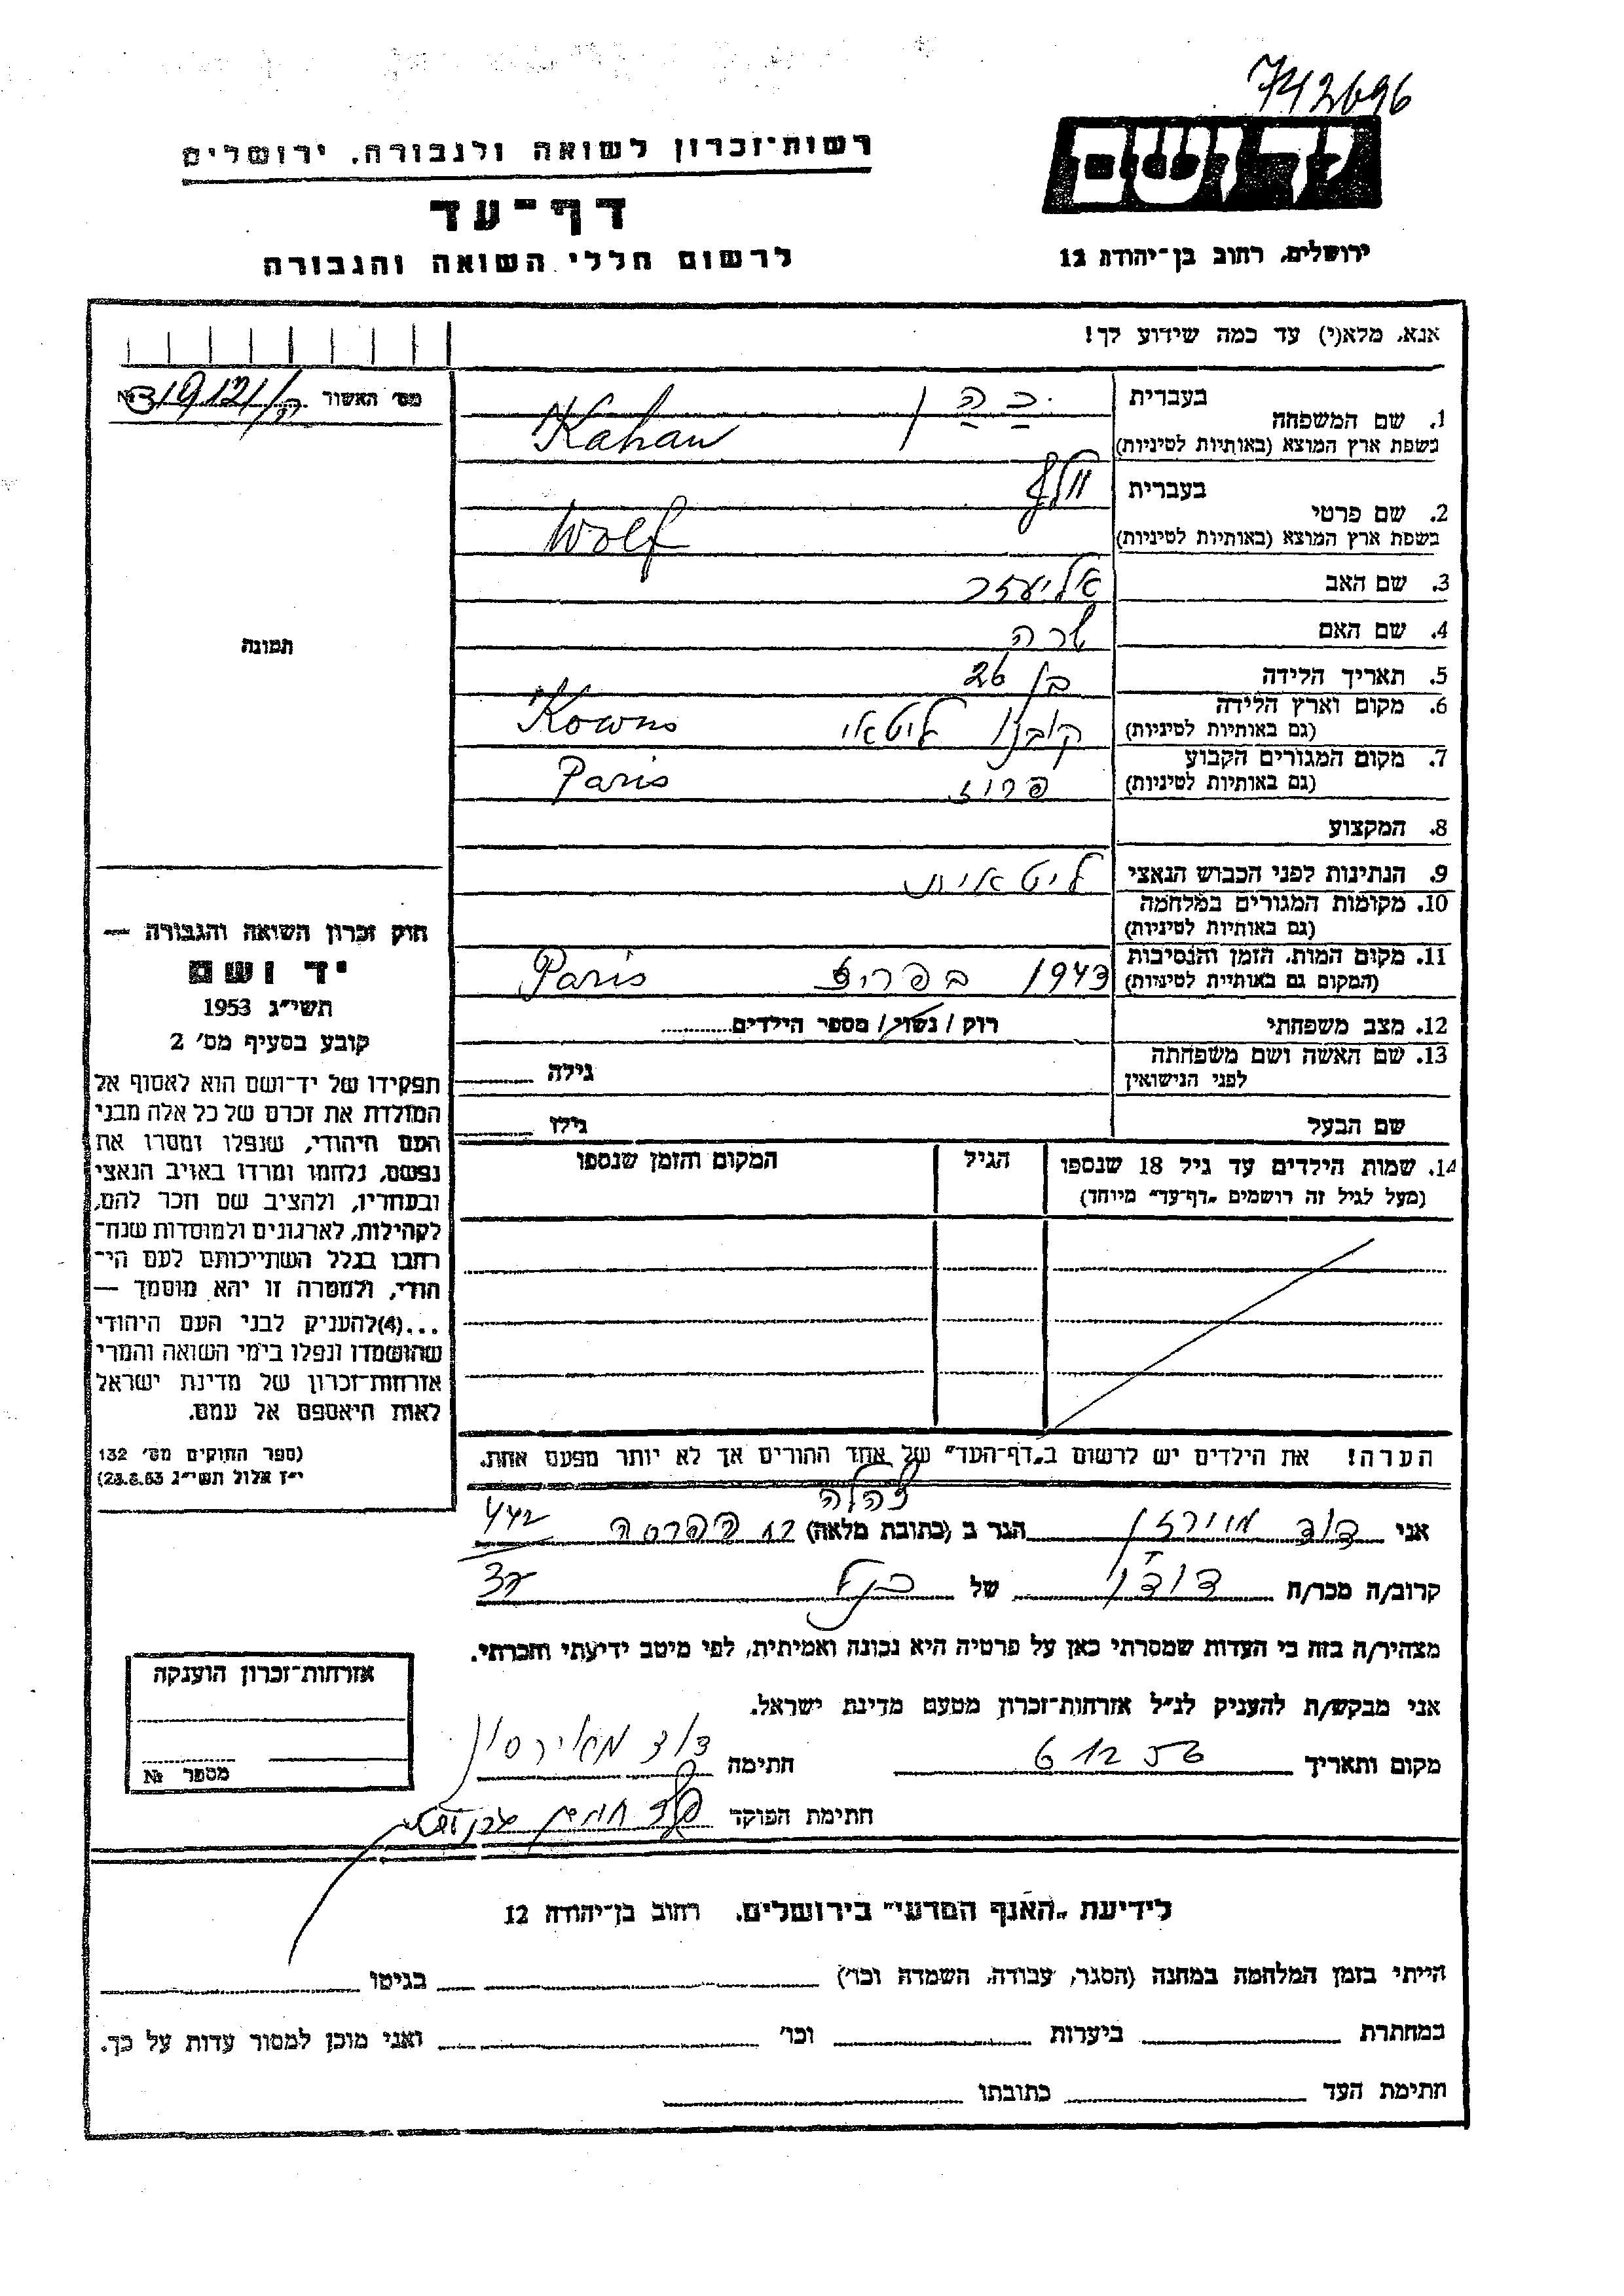 742696
רשות־זכרון לשואה ולגבורה, ירושלים
יד ושם
דף־עד
לרשום חללי השואה והגבורה
ירושלים, רחוב בן־יהודה 12
אנא, מלא(י) עד כמה שידוע לך!
מס׳ האשור №
1. שם המשפחה
בעברית כהן
בשפת ארץ המוצא (באותיות לטיניות) Kahan
2. שם פרטי
בעברית וולף
בשפת ארץ המוצא (באותיות לטיניות) Wolf
3. שם האב אליעזר
4. שם האם שרה
5. תאריך הלידה בן 26
6. מקום וארץ הלידה קובנו ליטאי Kowno
(גם באותיות לטיניות)
7. מקום המגורים הקבוע פריז Paris
(גם באותיות לטיניות)
8. המקצוע
9. הנתינות לפני הכבוש הנאצי ליטאית
10. מקומות המגורים במלחמה
(גם באותיות לטיניות)
11. מקום המות, הזמן והנסיבות 1943 בפריז Paris
(המקום גם באותיות לטיניות)
12. מצב משפחתי רוק / נשוי / מספר הילדים
13. שם האשה ושם משפחתה
לפני הנישואין גילה
שם הבעל גילו
14. שמות הילדים עד גיל 18 שנספו הגיל המקום והזמן שנספו
(מעל לגיל זה רושמים „דף־עד״ מיוחד)
תמונה
חוק זכרון השואה והגבורה —
יד ושם
תשי״ג 1953
קובע בסעיף מס׳ 2
תפקידו של יד־ושם הוא לאסוף אל
המולדת את זכרם של כל אלה מבני
העם היהודי, שנפלו ומסרו את
נפשם, נלחמו ומרדו באויב הנאצי
ובעוזריו, ולהציב שם וזכר להם,
לקהילות, לארגונים ולמוסדות שנח־
רחבו בגלל השתייכותם לעם הי־
הודי, ולמטרה זו יהא מוסמך —
...(4)להעניק לבני העם היהודי
שהושמדו ונפלו בימי השואה והמרי
אזרחות־זכרון של מדינת ישראל
לאות היאספם אל עמם.
(ספר החוקים מס׳ 132
י״ז אלול תשי״ג 23.8.53)
הערה! את הילדים יש לרשום ב„דף־העד״ של אחד ההורים אך לא יותר מפעם אחת.
צהלה
אני דוד מוירזון הגר ב (כתובת מלאה) 442
קרוב/ה מכר/ה דודן של הנ״ל 32
מצהיר/ה בזה כי העדות שמסרתי כאן על פרטיה היא נכונה ואמיתית, לפי מיטב ידיעתי והכרתי.
אני מבקש/ת להעניק לנ״ל אזרחות־זכרון מטעם מדינת ישראל.
מקום ותאריך 6 12 56 חתימה דוד מאירסון
חתימת הפוקד
אזרחות־זכרון הוענקה
מספר №
לידיעת „האגף המדעי״ בירושלים, רחוב בן־יהודה 12
הייתי בזמן המלחמה במחנה (הסגר, עבודה, השמדה וכו׳) בגיטו
במחתרת ביערות וכו׳ ואני מוכן למסור עדות על כך.
חתימת העד כתובתו